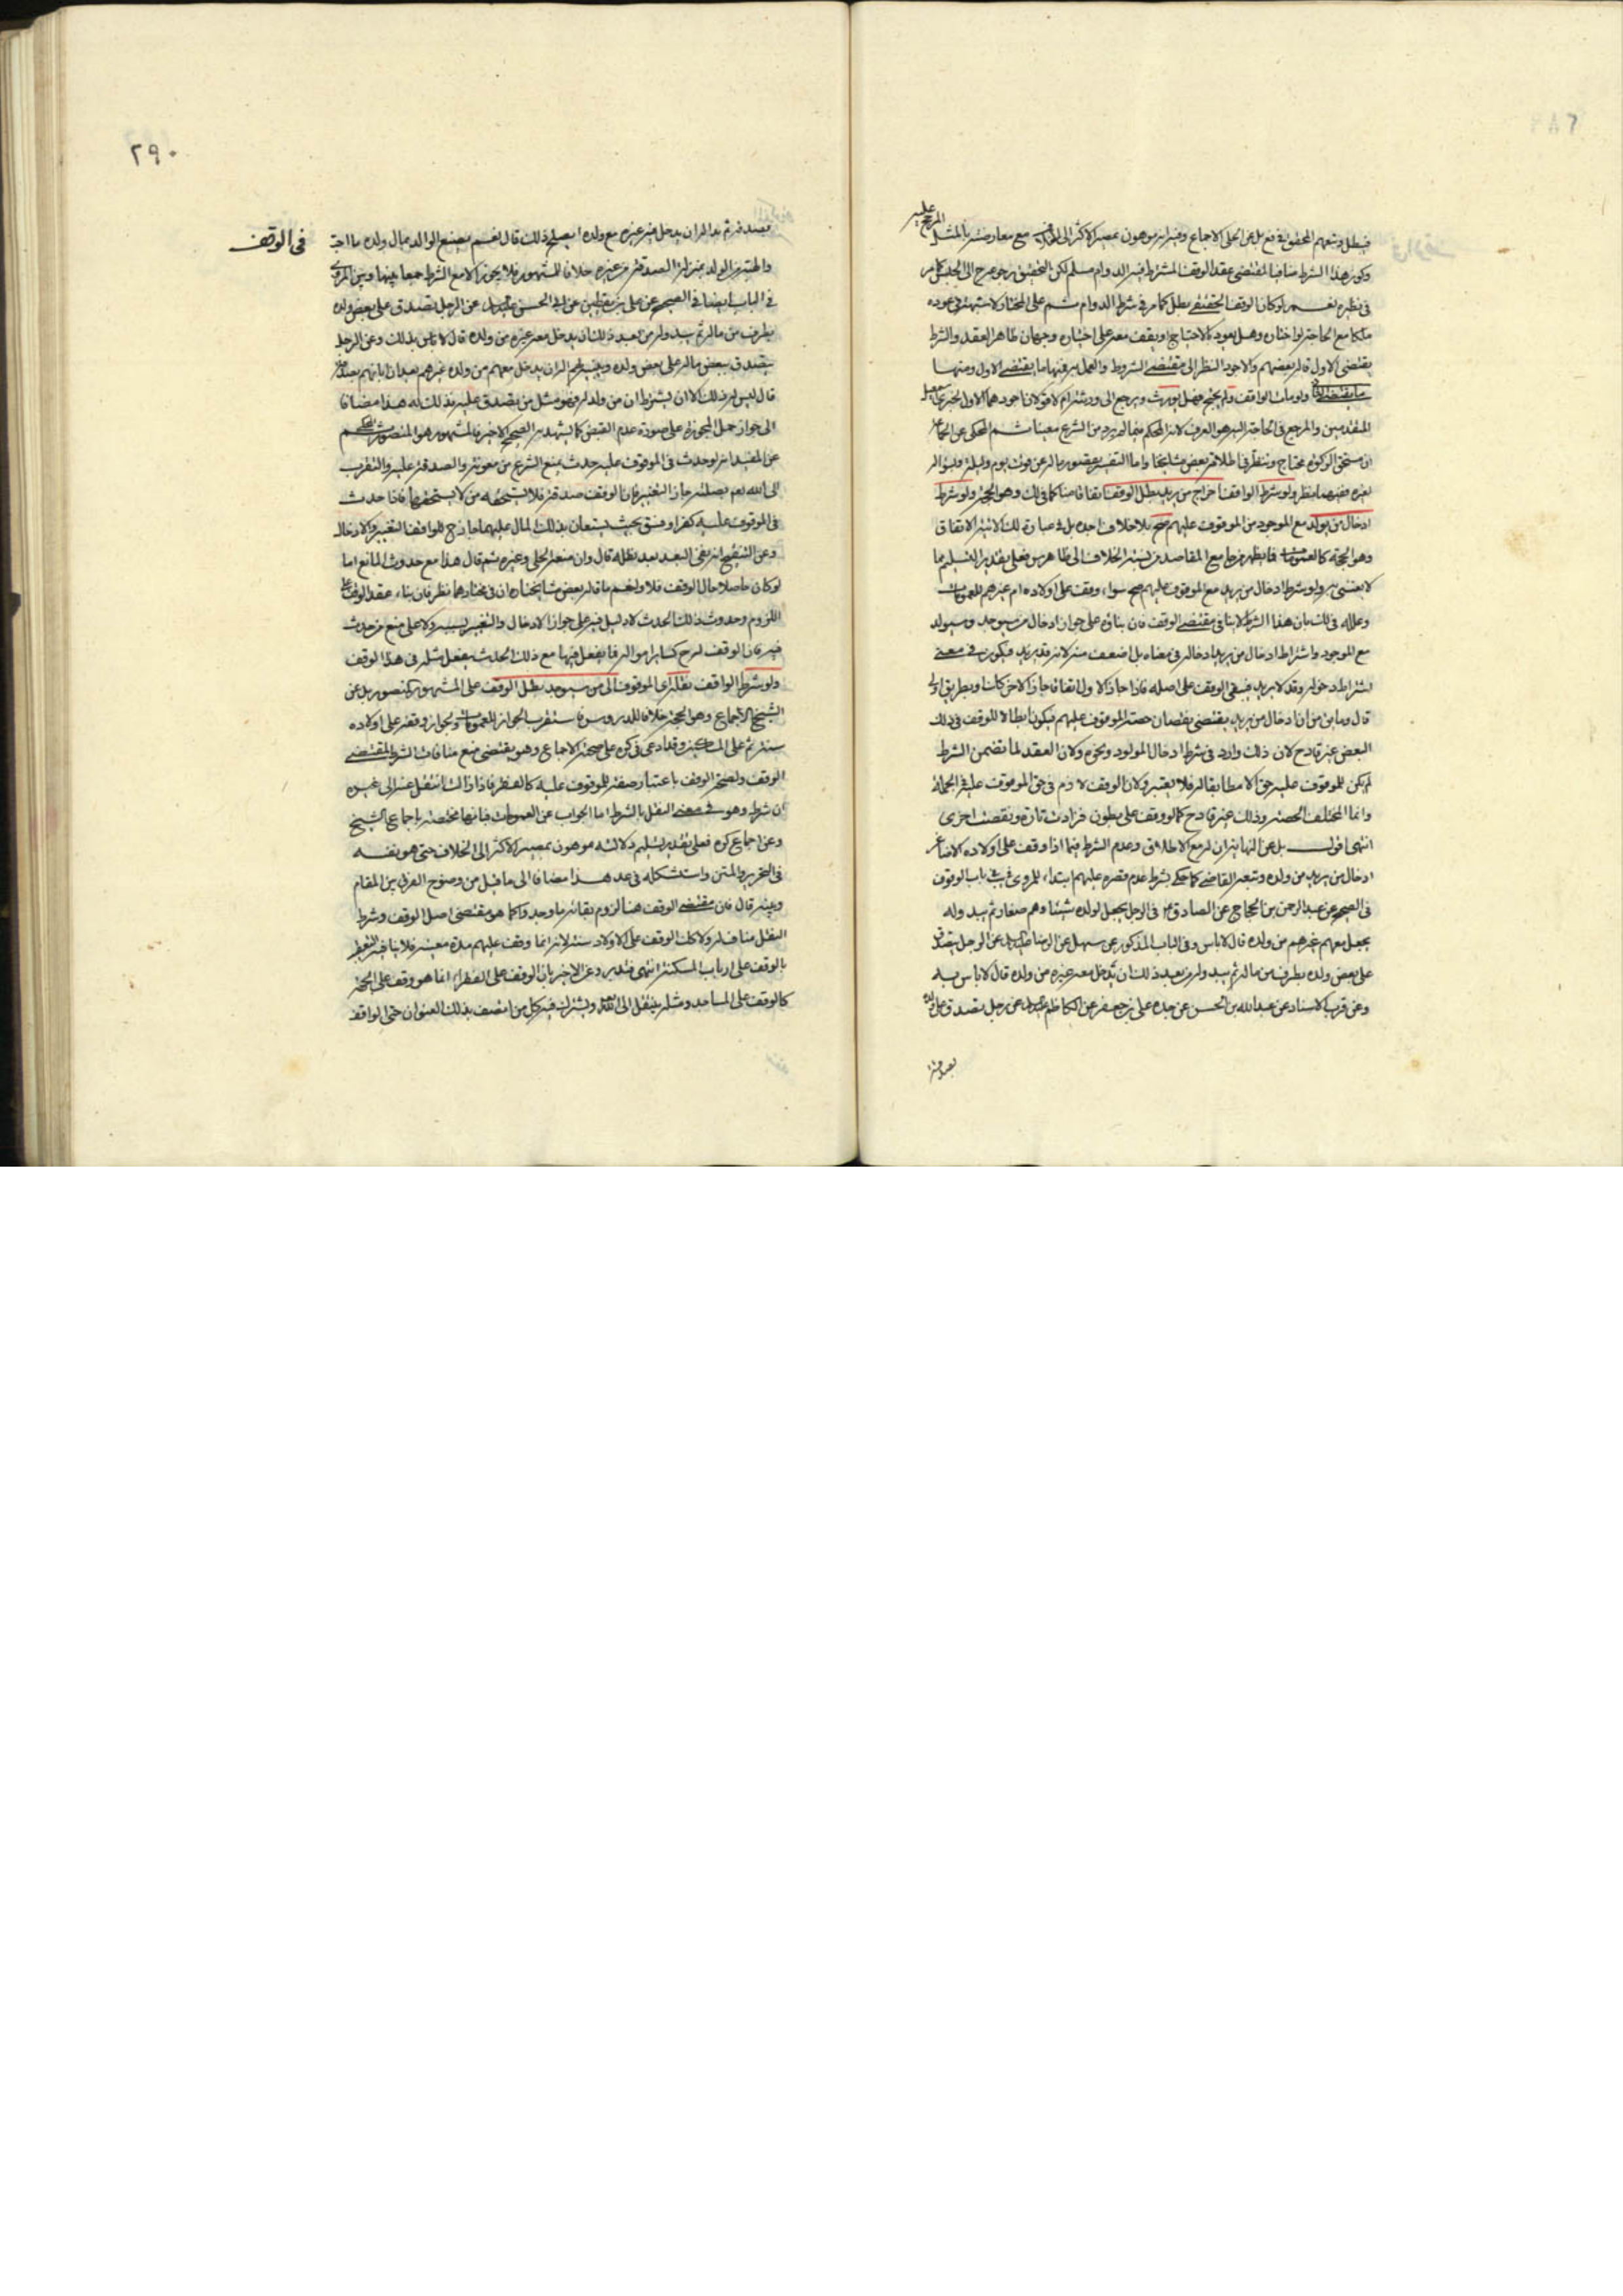 فيبطل وتبعهم المحقق في فع بل عن الحلي الاجماع وفيه انه موهون بمصير الاكثر الى خلافه مع معارضته بالمثل
وكون هذا الشرط منافيا لمقتضى عقد الوقف المشترط فيه الدوام مسلم لكن التحقيق رجوعه الى الحبس كما مر
في نظيره نعم لو كان الوقف الحقيقي بطل كما مر في شرط الدوام ثم على المختار لا شبهة في عوده
ملكا مع الحاجة لو اختاره وهل يعود بالاحتياج او يقف معه على اختياره وجهان ظاهر العقد والشرط
يقتضي الاول قاله بعضهم والاجود النظر الى مقتضى الشروط والعمل به فيها ما يقتضي الاول ومنها
ما يقتضي الثاني ولو مات الواقف ولم يحتج فهل يورث ويرجع الى ورثته ام لا قولان اجودهما الاول لخبري اسمعيل
المتقدمين والمرجع في الحاجة اليه هو العرف لانه المحكم فيما لم يرد من الشرع معينا ثم المحكي عن
ان مستحق الزكوة محتاج وتنظر في اطلاقه بعض مشايخنا واما التفسير بقصور ماله عن قوت يوم وليلة وبسؤاله
لغيره ففيهما نظر ولو شرط الواقف اخراج من يريد بطل الوقف اتفاقا منا كما في لك وهو الحجة ولو شرط
ادخال من يولد مع الموجود من الموقوف عليهم صح بلا خلاف اجده بل في عبارة لك الاتية الاتفاق
وهو الحجة كالعمومات فما يظهر من جامع المقاصد من نسبة الخلاف الى ظاهر س فعلى تقدير التسليم مما
لا يعتنى به ولو شرط ادخال من يريد مع الموقوف عليهم صح سواء وقف على اولاده ام غيرهم للعمومات
وعلله في لك بان هذا الشرط لا ينافي مقتضى الوقف فان بناؤه على جواز ادخال من سيوجد وسيولد
مع الموجود واشتراط ادخال من يريد ادخاله في معناه بل اضعف منه لانه قد يريد فيكون في معنى
اشتراط دخوله وقد لا يريد فيبقى الوقف على اصله فاذا جاز الاول اتفاقا جاز الاخر كك او بطريق اولى
قال وما بين من ان ادخال من يريد يقتضي نقصان حصة الموقوف عليهم فيكون ابطالا للوقف في ذلك
البعض غير قادح لان ذلك وارد في شرط ادخال المولود ونحوه ولان العقد لما تضمن الشرط
لم يكن للموقوف عليه حق الا مطابقا له فلا يعتبر ولان الوقف لازم في حق الموقوف عليه في الجملة
وانما المختلف الحصة وذلك غير قادح كما لو وقف على بطون فزادت تارة ونقصت اخرى
انتهى اقول بل عن النهاية ان له مع الاطلاق وعدم الشرط فيما اذا وقف على اولاده الاصاغر
ادخال من يريد من ولده وتبعه القاضي كما حكي بشرط عدم قصره عليهم ابتداء للمروي في يب باب الوقوف
في الصحيح عن عبد الرحمن بن الحجاج عن الصادق ع في الرجل يجعل لولده شيئا وهم صغار ثم يبدو له
يجعل معهم غيرهم من ولده قال لا باس وفي الباب المذكور عن سهل عن الرضا عن الرجل يتصدق
على بعض ولده بطرف من ماله ثم يبدو له من بعد ذلك ان يدخل معه غيره من ولده قال لا باس به
وعن قرب الاسناد عن عبد الله بن الحسن عن جده علي بن جعفر عن الكاظم عن رجل تصدق على ولده
بصدقة
٢٩٠
في الوقف
بصدقة ثم بدا له ان يدخل فيه غيره مع ولده ايصلح ذلك قال نعم يصنع الوالد بمال ولده ما احب
والهبة من الولد بمنزلة الصدقة من غيره خلافا للمشهور فلا يجوز الا مع الشرط جمعا بينها وبين المروي
في الباب ايضا في الصحيح عن علي بن يقطين عن ابي الحسن عن الرجل يتصدق على بعض ولده
بطرف من ماله ثم يبدو له من بعد ذلك ان يدخل معه غيره من ولده قال لا باس بذلك وعن الرجل
يتصدق ببعض ماله على بعض ولده ويبينه لهم اله ان يدخل معهم من ولده غيرهم بعد ان ابانهم بصدقة
قال ليس له ذلك الا ان يشترط ان من ولد له فهو مثل من تصدق عليه فذلك له هذا مضافا
الى جواز حمل المجوزة على صورة عدم القبض كما يشهد به الصحيح الاخير فالمشهور هو المنصور
عن المفيد انه لو حدث في الموقوف عليه حدث يمنع الشرع من معونته والصدقة عليه والتقرب
الى الله نعم بصلته جاز التغيير فان الوقف صدقة فلا يستحقه من لا يستحقها فاذا حدث
في الموقوف عليه كفر او فسق بحيث يستعان بذلك المال عليهما جاز ح للواقف التغيير والادخال
وعن التنقيح انه نفى البعد بعد نقله قال وان منعه الحلي وغيره ثم قال هذا مع حدوث المانع اما
لو كان حاصلا حال الوقف فلا ولنعم ما قاله بعض مشايخنا ان في مختارهما نظر فان بناء عقد الوقف على
اللزوم وحدوث ذلك الحدث لا دليل فيه على جواز الادخال والتغيير بسببه ولا على منع من حدث
فيه فان الوقف له ح كساير امواله فما يفعل فيها مع ذلك الحدث يفعل مثله في هذا الوقف
ولو شرط الواقف نقله اى الموقوف الى من سيوجد بطل الوقف على المشهور كما عن
الشيخ الاجماع وهو الحجة خلافا للدروس فاستقرب الجواز للعمومات ولجواز وقفه على اولاده
سنة ثم على المساكين وقد ادعى في كره على صحته الاجماع وهو يقتضي منع منافات الشرط لمقتضى
الوقف ولصحة الوقف باعتبار صفة للموقوف عليه كالفقر فاذا زالت انتقل عنه الى غيره
ان شرط وهو في معنى النقل بالشرط اما الجواب عن العمومات فبانها مخصصة باجماع الشيخ
وعن اجماع كره فعلى تقدير تسليم دلالته موهون بمصير الاكثر الى الخلاف حتى هو نفسه
في التحرير والمتن واستشكله في عد هذا مضافا الى ما قيل من وضوح الفرق بين المقام
وبينه قال فان مقتضى الوقف هنا لزوم بقائه ما وجد دائما كما هو مقتضى اصل الوقف وشرط
النقل مناف له ولا كك الوقف على الاولاد سنة لانه انما وقف عليهم مدة معينة فلا ينافيه التعقيب
بالوقف على ارباب المسكنة انتهى فتدبر وعن الاخير بان الوقف على الفقراء انما هو وقف على الجهة
كالوقف على المساجد ومثله ينتقل الى الله ويشترك فيه كل من اتصف بذلك العنوان حتى الواقف